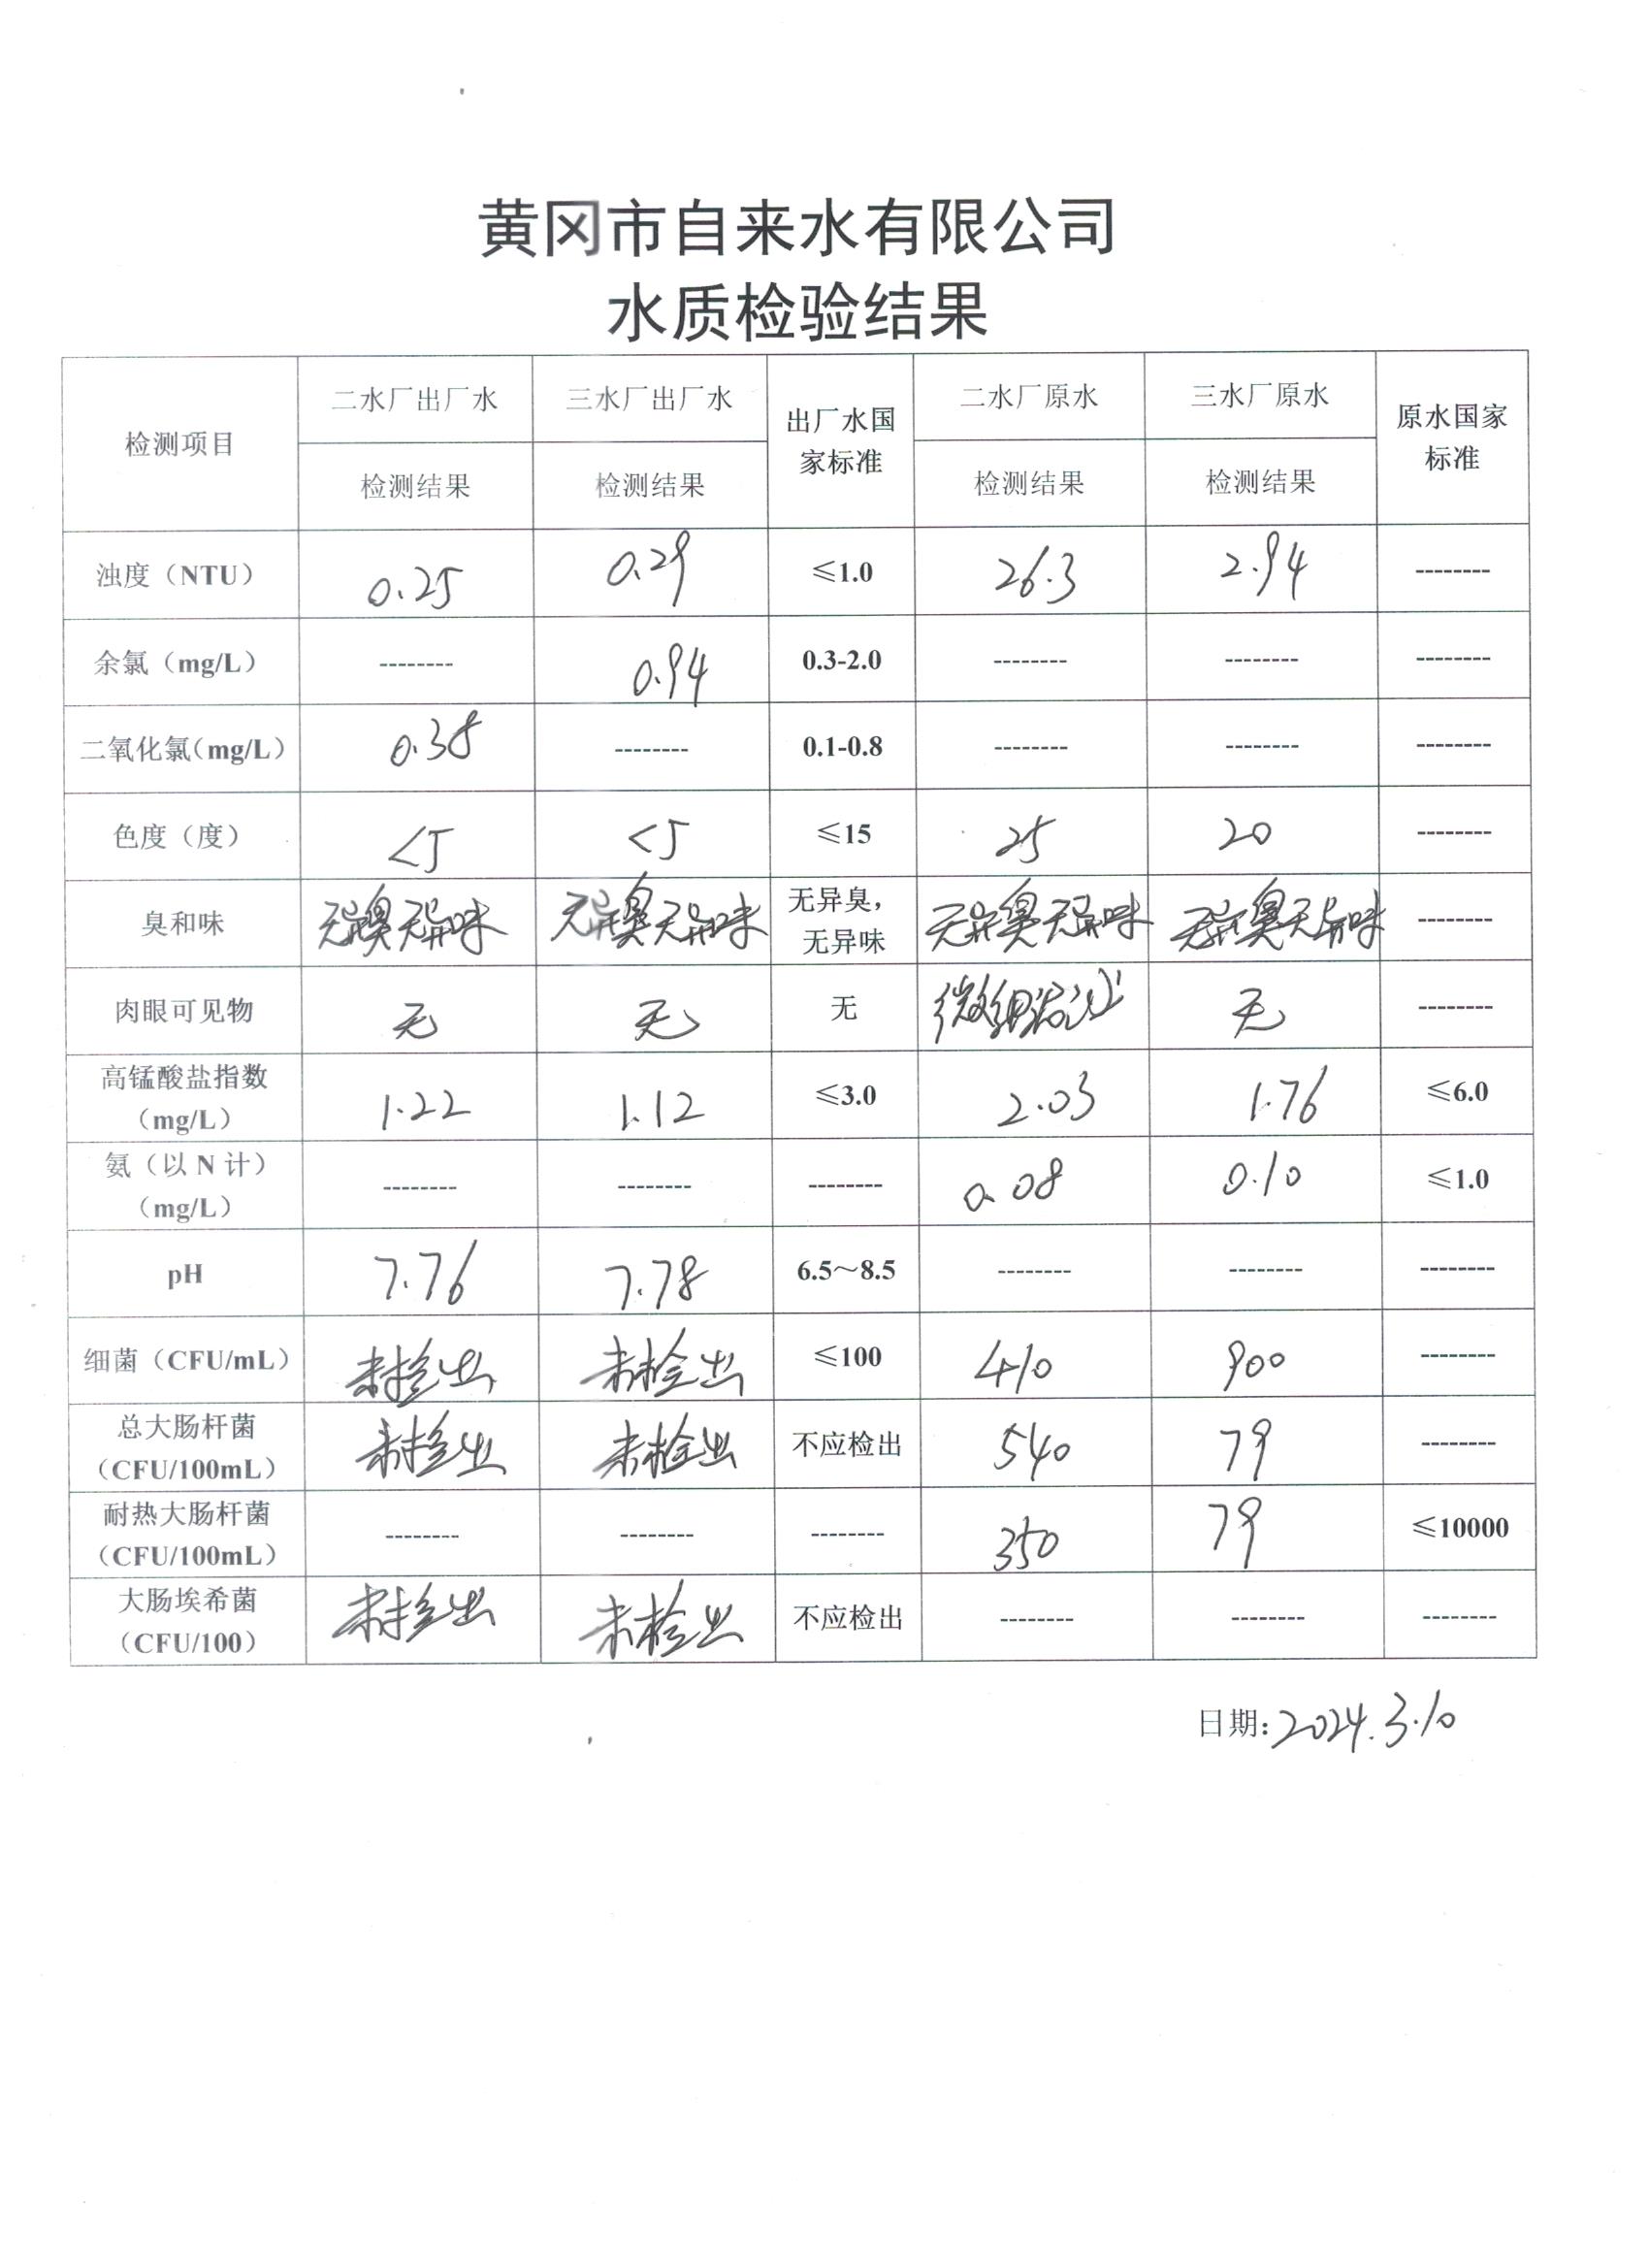 黄冈市自来水有限公司
水质检验结果
检测项目 二水厂出厂水 三水厂出厂水 出厂水国家标准 二水厂原水 三水厂原水 原水国家标准
检测结果 检测结果 检测结果 检测结果
浊度（NTU） 0.25 0.29 ≤1.0 26.3 2.94 --------
余氯（mg/L） -------- 0.94 0.3-2.0 -------- -------- --------
二氧化氯（mg/L） 0.38 -------- 0.1-0.8 -------- -------- --------
色度（度） <5 <5 ≤15 25 20 --------
臭和味 无异臭无异味 无异臭无异味 无异臭，无异味 无异臭无异味 无异臭无异味 --------
肉眼可见物 无 无 无 微细 无 --------
高锰酸盐指数（mg/L） 1.22 1.12 ≤3.0 2.03 1.76 ≤6.0
氨（以 N 计）（mg/L） -------- -------- -------- 0.08 0.10 ≤1.0
pH 7.76 7.78 6.5～8.5 -------- -------- --------
细菌（CFU/mL） 未检出 未检出 ≤100 410 900 --------
总大肠杆菌（CFU/100mL） 未检出 未检出 不应检出 540 79 --------
耐热大肠杆菌（CFU/100mL） -------- -------- -------- 350 79 ≤10000
大肠埃希菌（CFU/100） 未检出 未检出 不应检出 -------- -------- --------
日期：2024.3.10